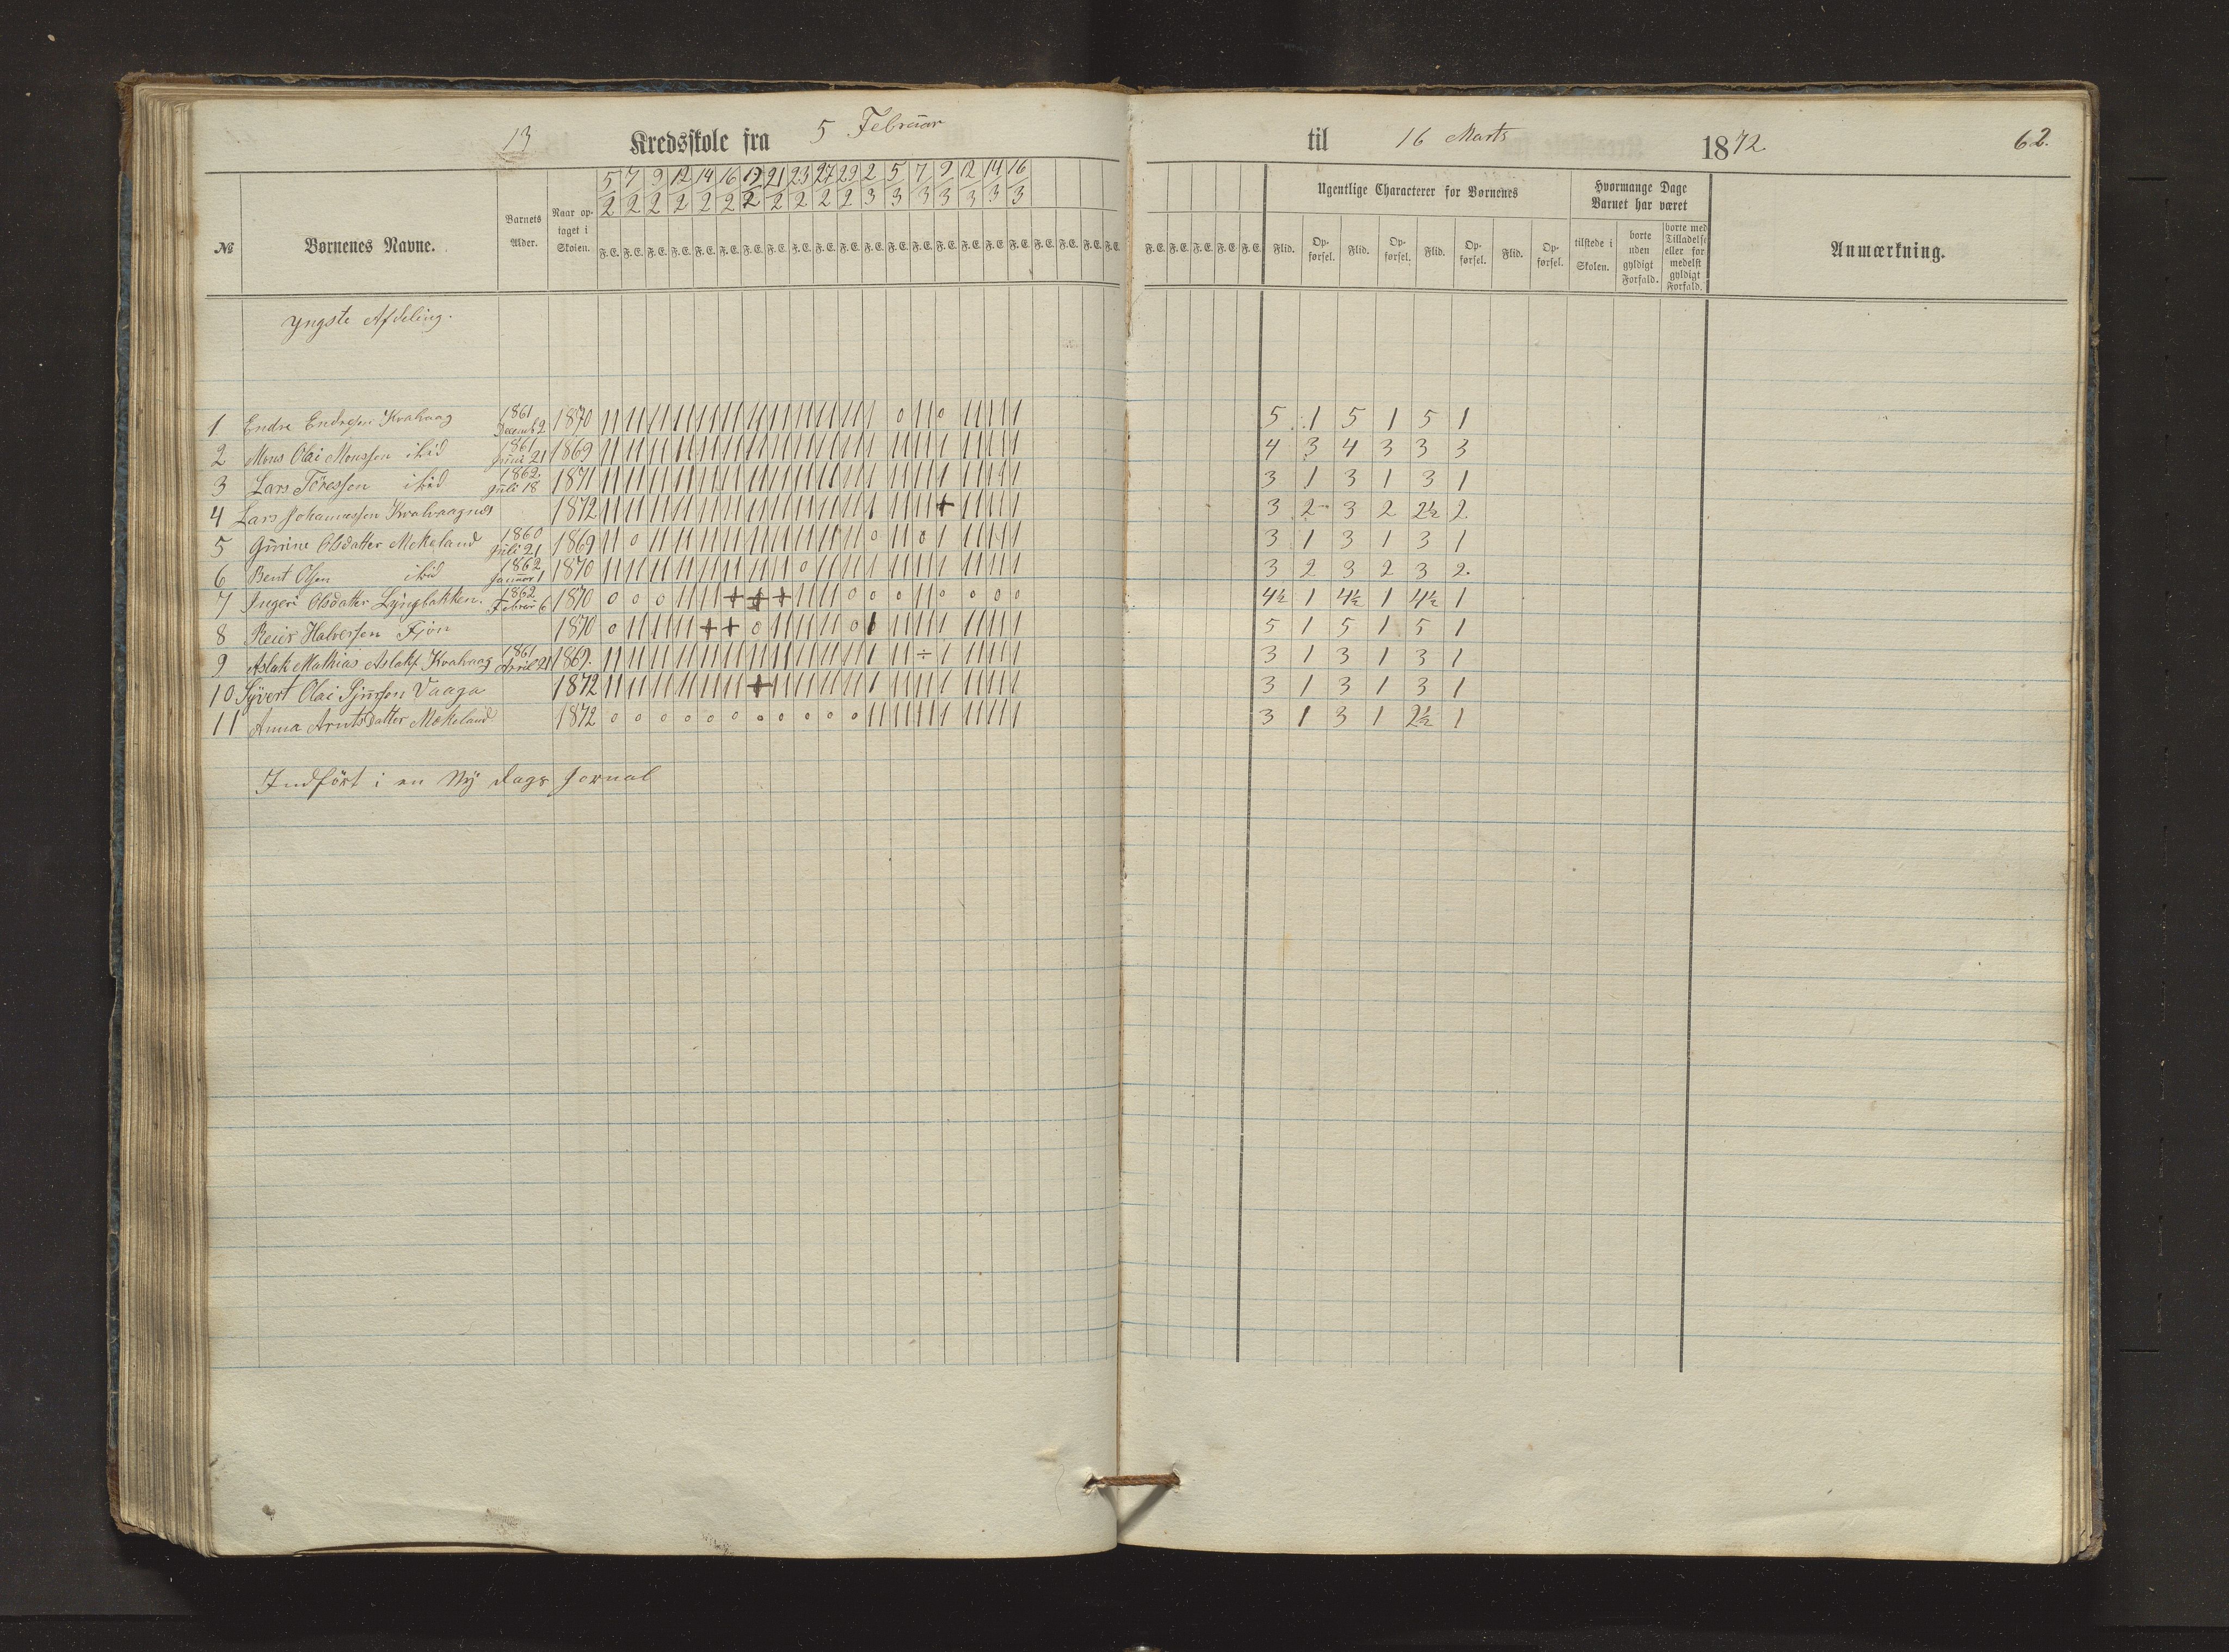 13 Kredsskole fra 5 Februar til 16 Marts 1872. 62.
№ Børnenes Navne. Barnets Alder. Naar op-taget i Skolen. 5/2 7/2 9/2 12/2 14/2 16/2 19/2 21/2 23/2 27/2 29/2 2/3 5/3 7/3 9/3 12/3 14/3 16/3
F.E. F.E. F.E. F.E. F.E. F.E. F.E. F.E. F.E. F.E. F.E. F.E. F.E. F.E. F.E. F.E. F.E. F.E. F.E. F.E. F.E. F.E. F.E. F.E. F.E. F.E. F.E.
Ugentlige Characterer for Børnenes
Flid. Op-førsel. Flid. Op-førsel. Flid. Op-førsel. Flid. Op-førsel.
Hvormange Dage Barnet har været
tilstede i Skolen. borte uden gyldigt Forfald. borte med Tilladelse eller for medelst gyldigt Forfald.
Anmærkning.
Yngste Afdeling.
1. Endre Endresen Kvalvaag 1861 Decemb 2 1870 5 1 5 1 5 1
2 Mons Olai Monssen ibid 1861 Juni 21 1869 4 3 4 3 3 3
3 Lars Töressen ibid 1862. Juli 18 1871 3 1 3 1 3 1
4 Lars Johannessen Kvalvaagnes 1872 3 2 3 2 2½ 2
5 Gurine Olsdatter Mekeland 1860 Juli 21 1869 3 1 3 1 3 1
6 Bent Olsen ibid 1862 Januar 1 1870 3 2 3 2 3 2.
7 Ingeri Olsdatter Lyngbakken. 1862 Februar 6 1870 4½ 1 4½ 1 4½ 1
8 Reier Halversen Fjön 1870 5 1 5 1 5 1
9 Aslak Mathias Aslaks. Kvalvaag 1861 April 21 1869. 3 1 3 1 3 1
10 Syvert Olai Sjursen Vaaga 1872 3 1 3 1 3 1
11 Anna Arntsdatter Mækeland 1872 3 1 3 1 2½ 1
Indfört i en Ny dags Jornal